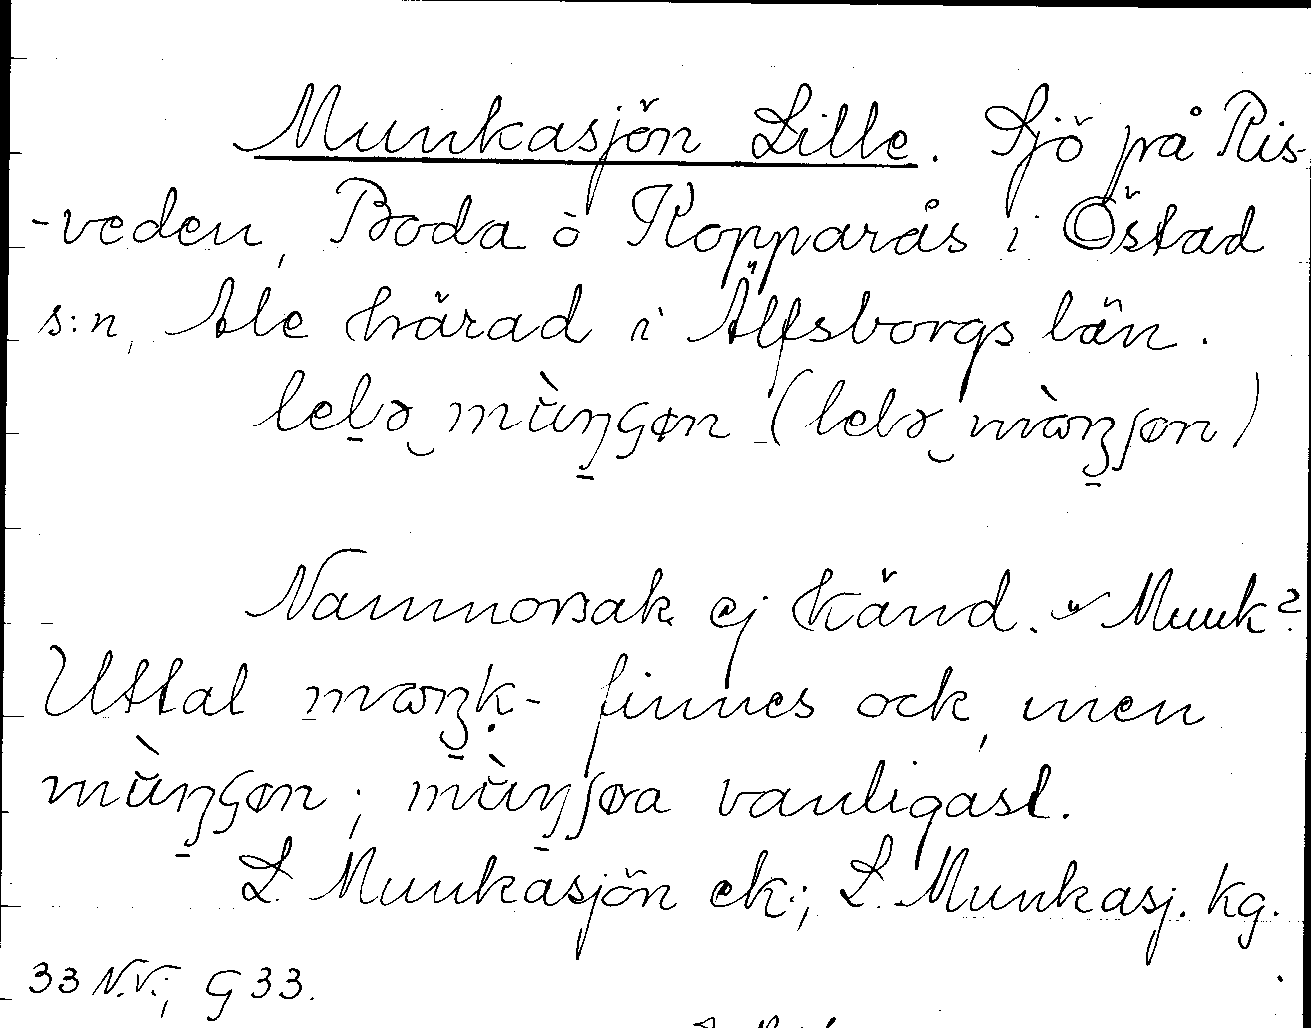 Munkasjön Lille. Sjö på Ris-
-veden, Boda o Kopparås i Östad
s:n, Ale härad i Älfsborgs län.
Namnorsak ej känd. Munk?
Uttal finnes ock, men
vanligast.
L. Munkasjön ek.; L. Munkasj. kg.
33 N.V.; G 33.